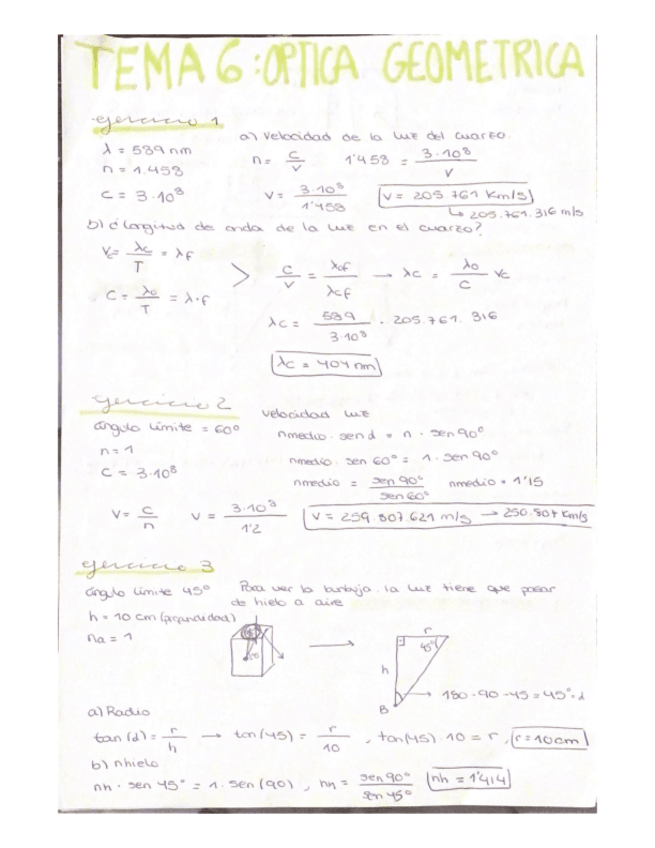 TEMA 6: OPTICA GEOMETRICA
ejercicio 1
a) Velocidad de la luz del cuarzo.
λ = 589 nm
n = 1.458
C = 3·10⁸
n = c/v 1'458 = 3·10⁸/v
v = 3·10⁸/1'458 v = 205.761 Km/s
↳ 205.761.316 m/s
b) ¿Longitud de onda de la luz en el cuarzo?
Vc = λc/T = λf
C = λo/T = λ·f
> c/v = λof/λcf → λc = λo/c Vc
λc = 589/3·10⁸ · 205.761.316
λc = 404 nm
ejercicio 2
Velocidad luz
ángulo límite = 60°
n = 1
C = 3·10⁸
nmedio · send = n · sen90°
nmedio · sen 60° = 1 · sen 90°
nmedio = sen 90°/sen 60° nmedio = 1'15
V = c/n v = 3·10⁸/1'2 v = 259.807.621 m/s → 250.804 Km/s
ejercicio 3
ángulo límite 45°
Para ver la burbuja la luz tiene que pasar
de hielo a aire
h = 10 cm (profundidad)
na = 1
→
r
45°
h
B
→ 180-90-45 = 45° = d
a) Radio
tan (d) = r/h → tan(45) = r/10 , tan(45)·10 = r , r = 10cm
b) nhielo
nh · sen 45° = 1 · sen (90) , nh = sen 90°/sen 45° nh = 1'414